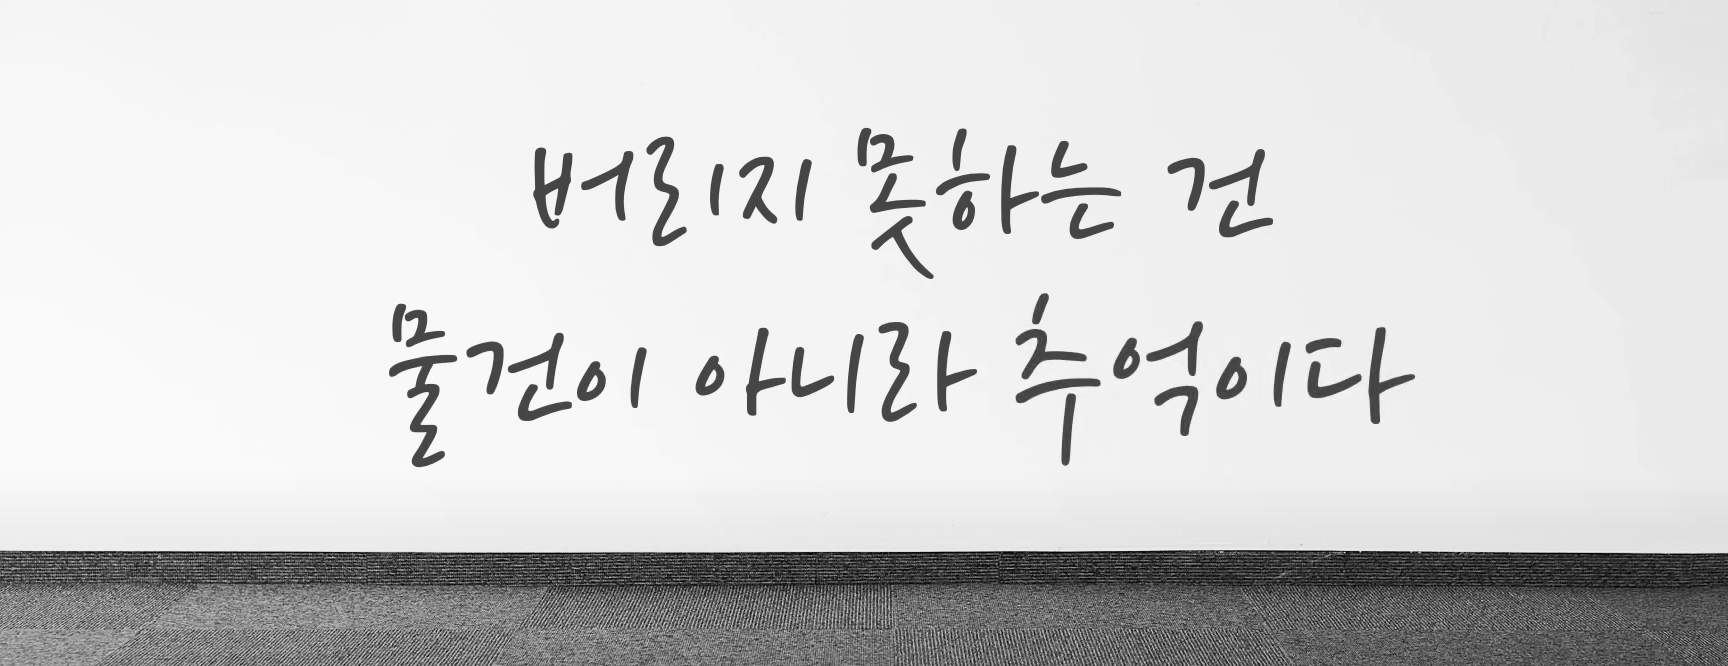 버리지 못하는 건
물건이 아니라 추억이다